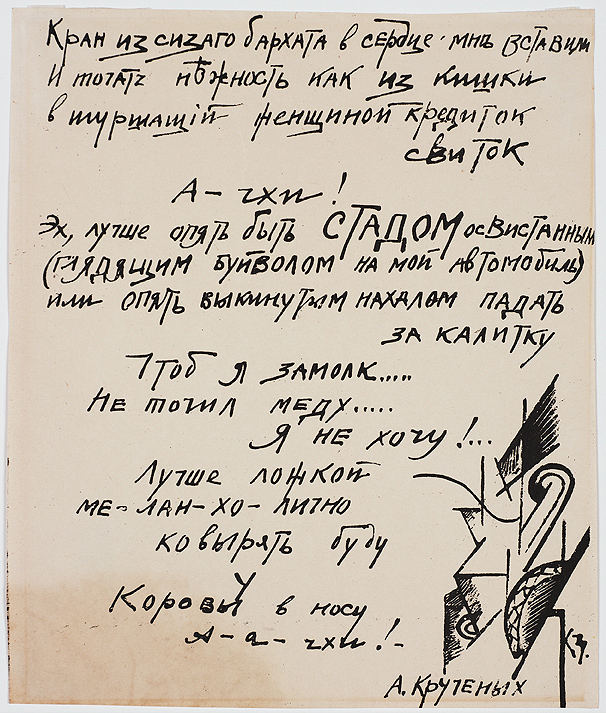 Кран из сизаго бархата в сердце мнѣ вставили
И точатъ нѣжность как из кишки
в шуршащій женщиной кредиток
свиток
А-чхи!
Эх, лучше опять быть СТАДОМ освистанным
(глядящим буйволом на мой автомобиль)
или опять выкинутым нахалом падать
за калитку
Чтоб я замолк.....
Не точил меду.....
Я не хочу!...
Лучше ложкой
ме-лан-хо-лично
ковырять буду
у
Коровы в носу
А-а-чхи!-
А. Крученых